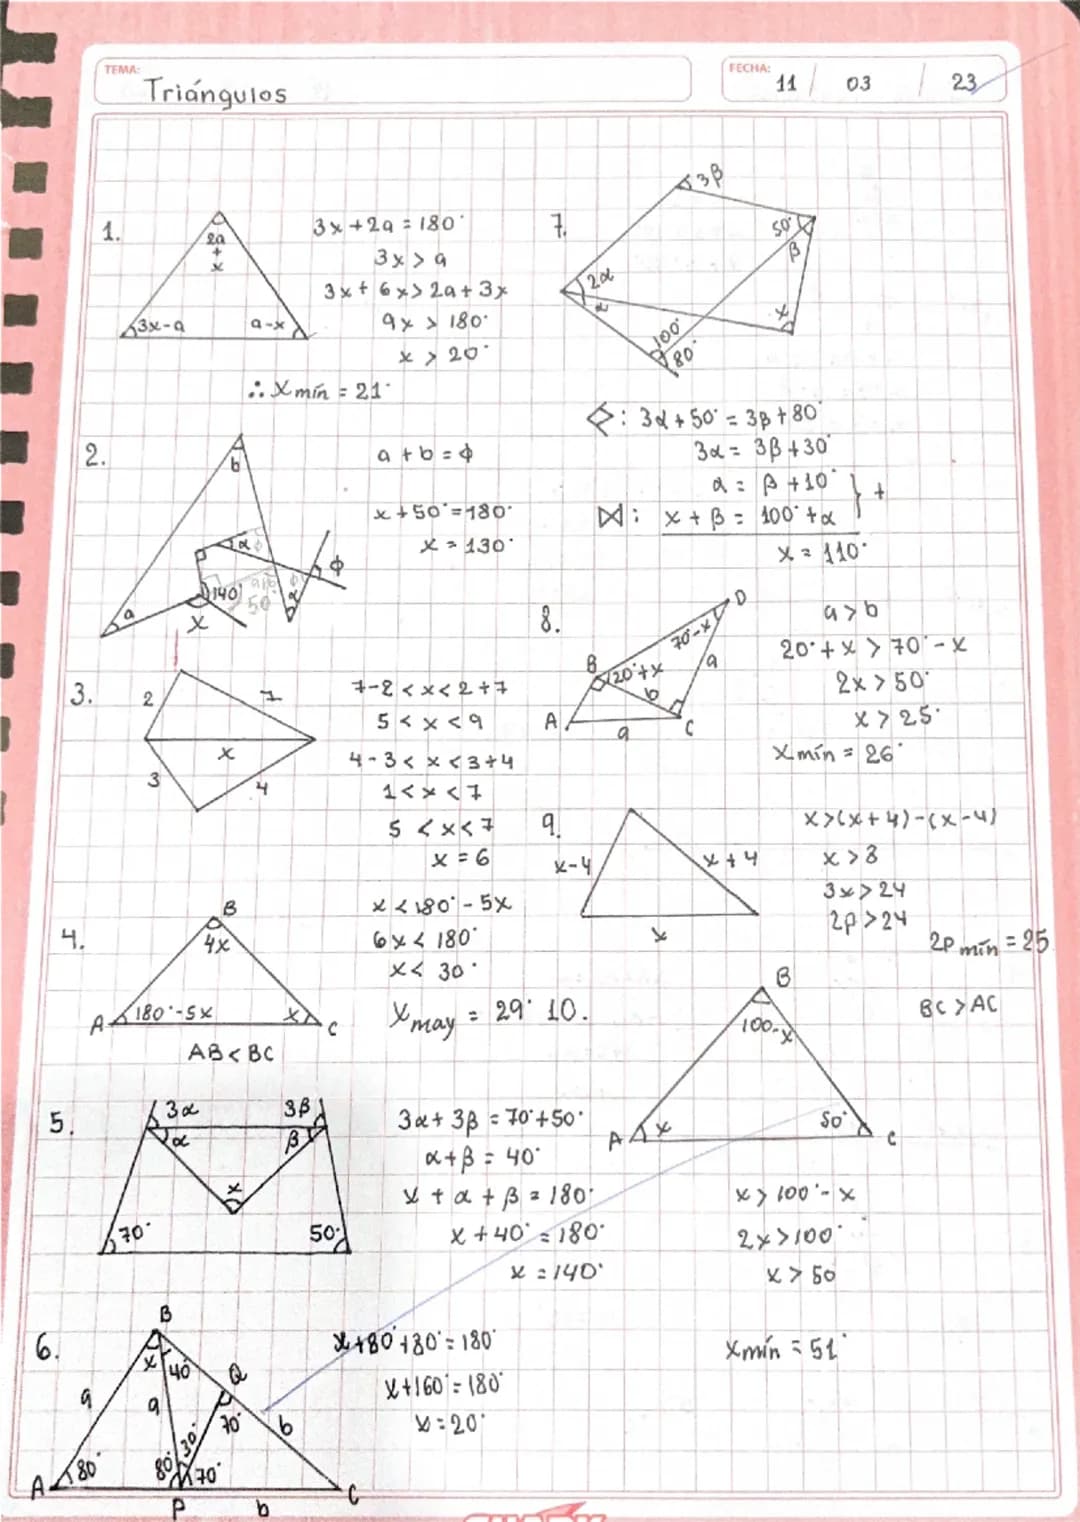 TEMA:
Triángulos
FECHA:
11 / 03 / 23
1.
2a
+
x
3x-a
a-x
3x+2a=180°
3x>a
3x+6x>2a+3x
9x>180°
x>20°
∴ Xmín = 21°
2.
b
α
a
140°
50°
α
ϕ
x
a+b=ϕ
x+50°=180°
x=130°
3.
2
7
x
3
4
7-2<x<2+7
5<x<9
4-3<x<3+4
1<x<7
5<x<7
x=6
4.
B
4x
A
180°-5x
x
C
AB<BC
x<180°-5x
6x<180°
x<30°
Xmay = 29°
5.
3α
3β
α
β
x
70°
50°
3α+3β=70°+50°
α+β=40°
x+α+β=180°
x+40°=180°
x=140°
6.
B
x
40°
Q
a
a
70°
b
30°
A
80°
80°
70°
C
P
b
x+80°+80°=180°
x+160°=180°
x=20°
7.
3β
50°
β
2α
α
x
100°
80°
: 3α+50°=3β+80°
3α=3β+30°
α=β+10° } +
⋈: x+β=100°+α
x=110°
8.
D
70°-x
B
20°+x
a
b
A
a
C
a>b
20°+x>70°-x
2x>50°
x>25°
Xmín = 26°
9.
x-4
x+4
x
x>(x+4)-(x-4)
x>8
3x>24
2p>24
2p mín = 25
10.
B
100-x
A
x
50°
C
BC>AC
x>100°-x
2x>100°
x>50
xmín = 51°